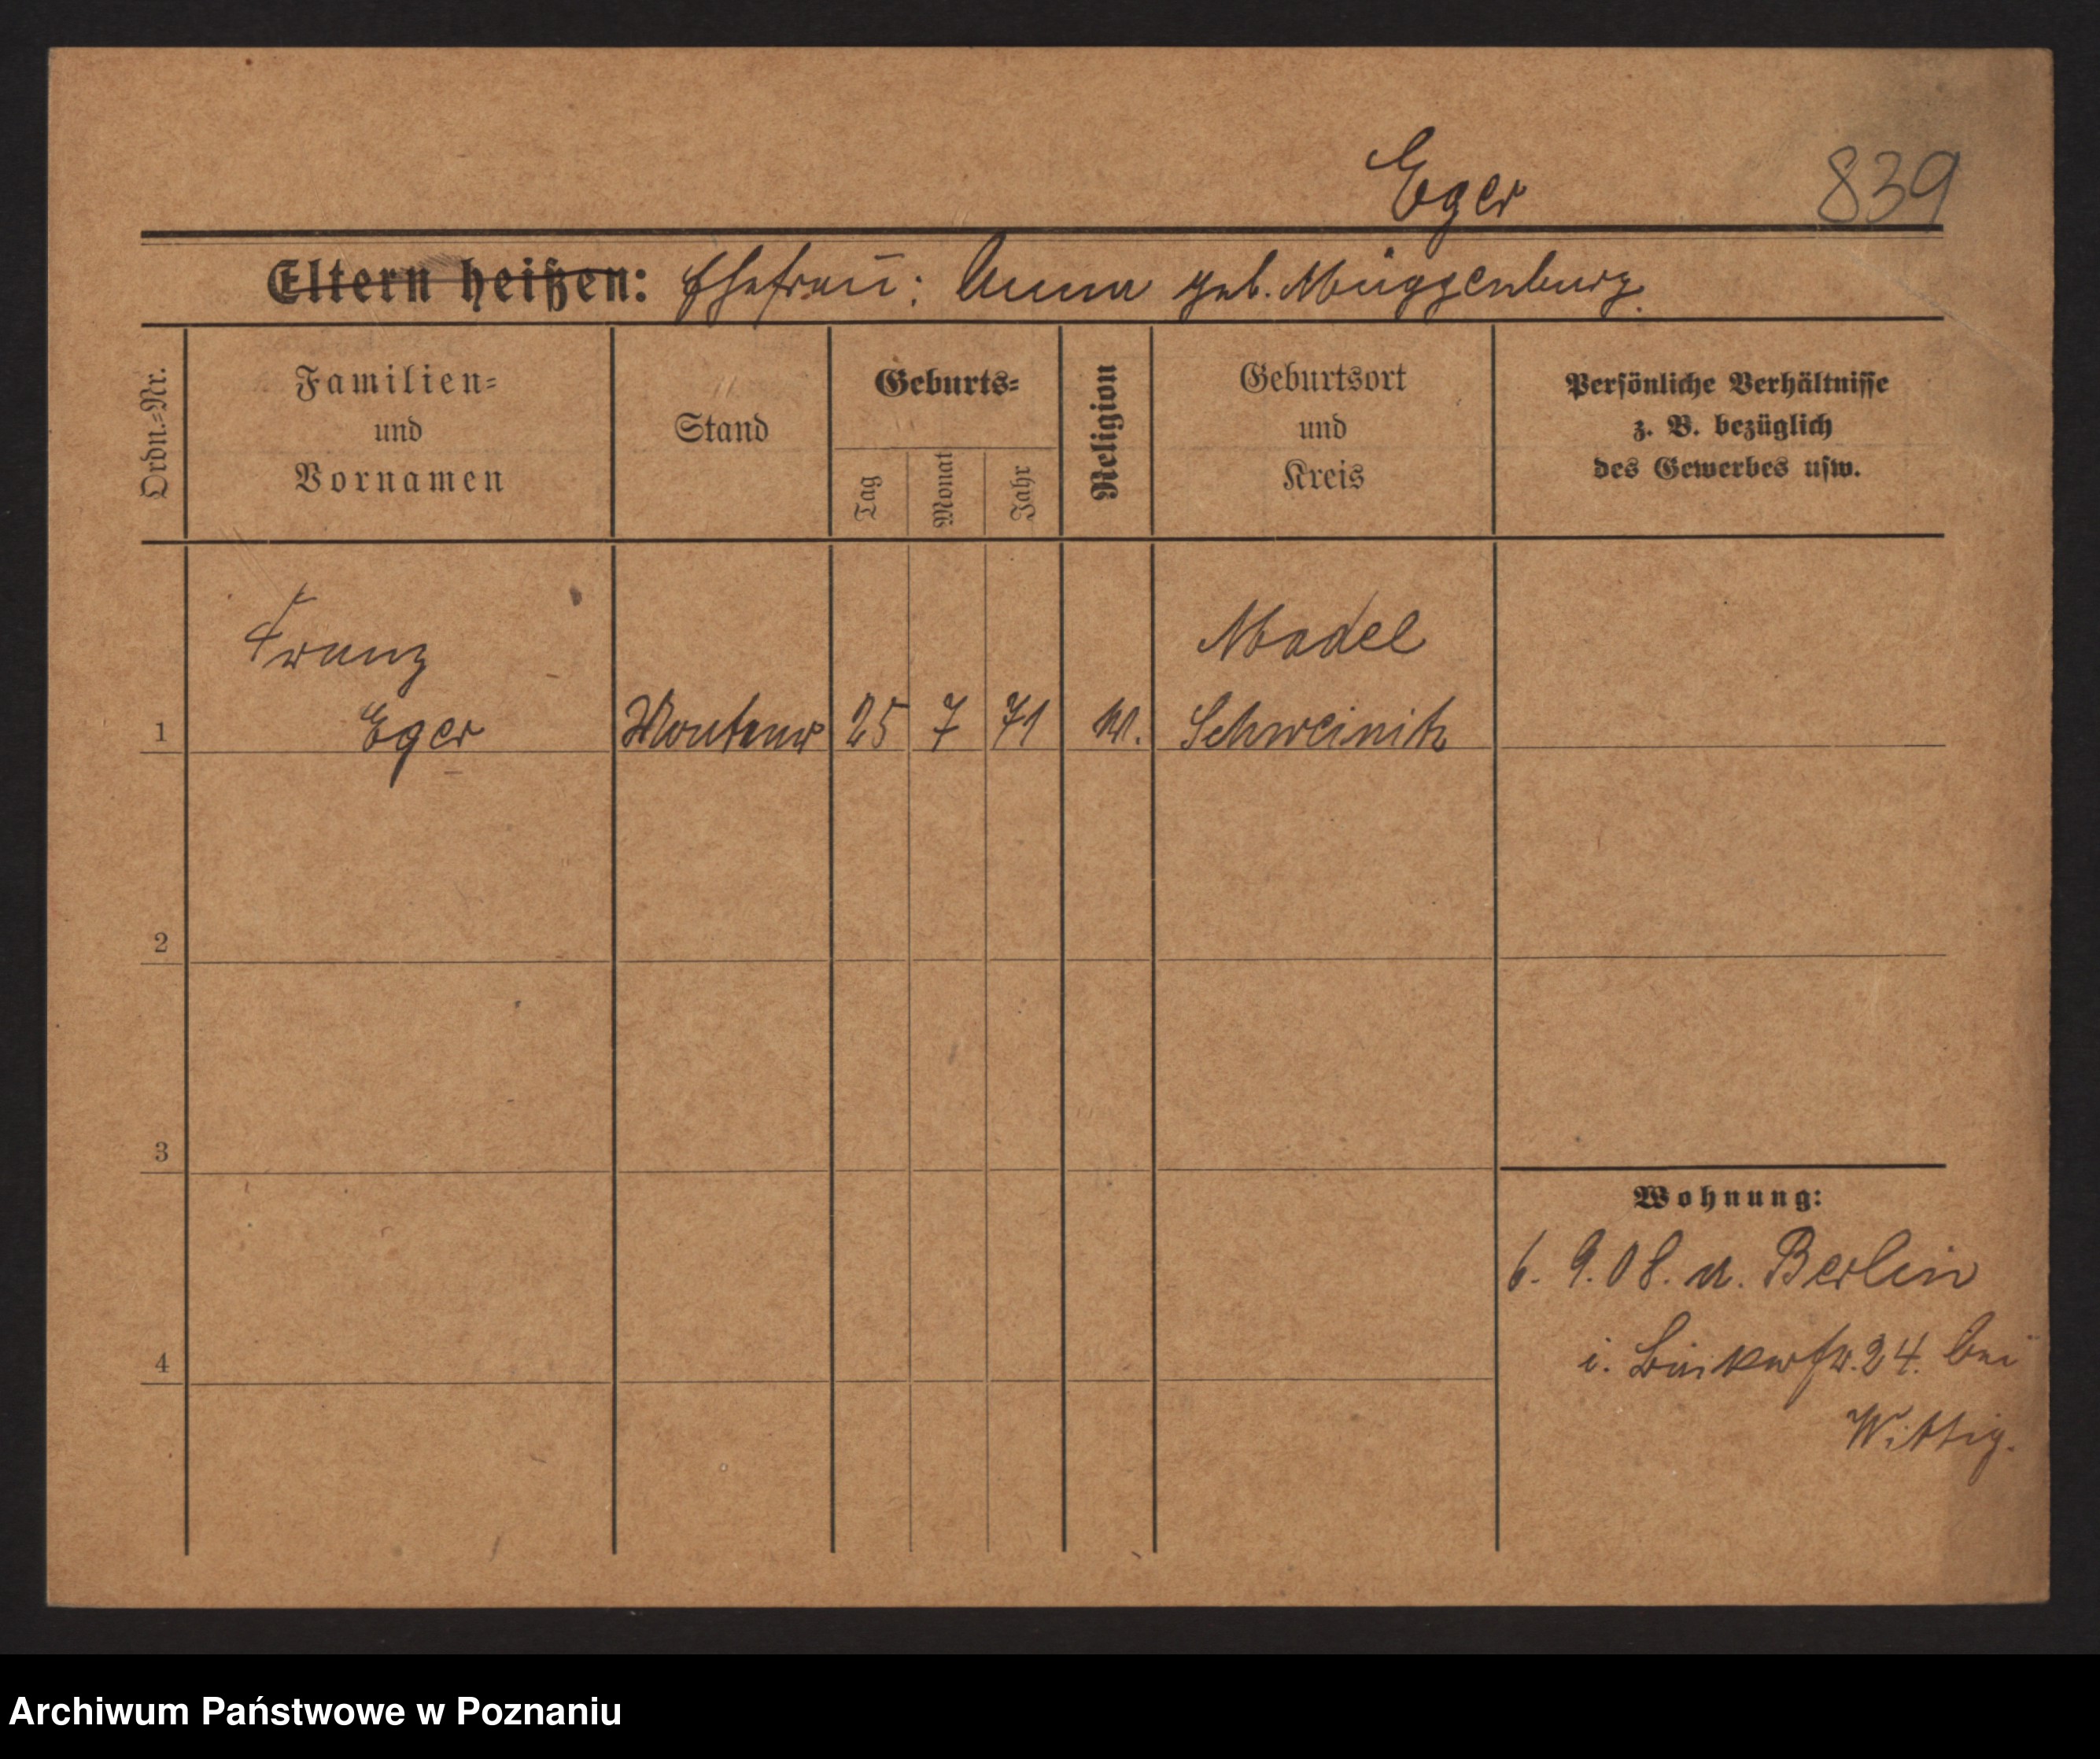 Eger 839
Eltern heißen: Ehefrau: Anna geb. Müggenburg.
Ordn.=Nr.
Familien=
und
Vornamen
Stand
Geburts=
Tag
Monat
Jahr
Religion
Geburtsort
und
Kreis
Persönliche Verhältnisse
z. B. bezüglich
des Gewerbes usw.
Franz Madel
1 Eger Monteur 25 7 71 Schweinitz
2
3
4
Wohnung:
6. 9. 08. a. Berlin
i. 24. bei
Wittig.
Archiwum Państwowe w Poznaniu